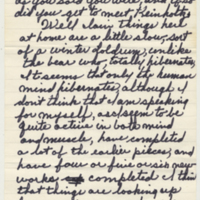 as you said you were, and
did you get to meet,
Well Clair things here
at home are a little slow, sort
of a winter doldrum, unlike
the bear who, totally hibernates,
It seems that only the human
mind hibernates, although I
don't think that I am speaking
for myself, as I seem to be
quite active in both mind
and muscle, have completed
a lot of the earlier pieces, and
have four or five or six new
works completed I think
that things are looking up